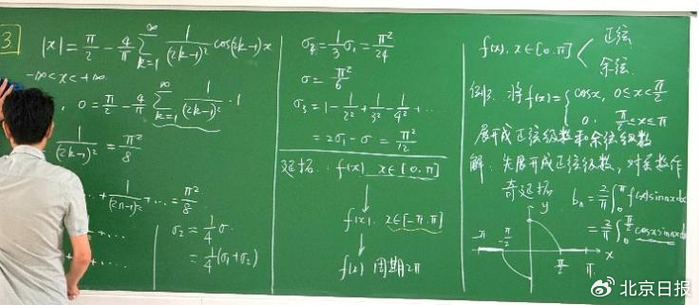 3
|x| = π/2 - 4/π ∑_{k=1}^{∞} 1/(2k-1)² cos(2k-1)x
-∞<x<+∞
0 = π/2 - 4/π ∑_{k=1}^{∞} 1/(2k-1)² · 1
1/(2k-1)² = π²/8
... + 1/(2n-1)² + ... = π²/8
+ ...
+ ...
σ₂ = 1/4 σ
= 1/4 (σ₁+σ₂)
σ₂ = 1/3 σ₁ = π²/24
σ = π²/6
σ₃ = 1 - 1/2² + 1/3² - 1/4² + ...
= 2σ₁ - σ = π²/12
延拓. f(x) x∈[0,π]
f(x). x∈[-π,π]
f(x) 周期2π
f(x), x∈[0,π] 正弦
余弦
例1. 将 f(x) = { cosx, 0≤x<π/2
0, π/2≤x≤π
展开成正弦级数和余弦级数
解: 先展开成正弦级数, 对 作
奇延拓 bₙ = 2/π ∫₀^π f(x)sinnxdx
= 2/π ∫₀^{π/2} cosxsinnxdx
y
-π -π/2 π/2 π x
北京日报